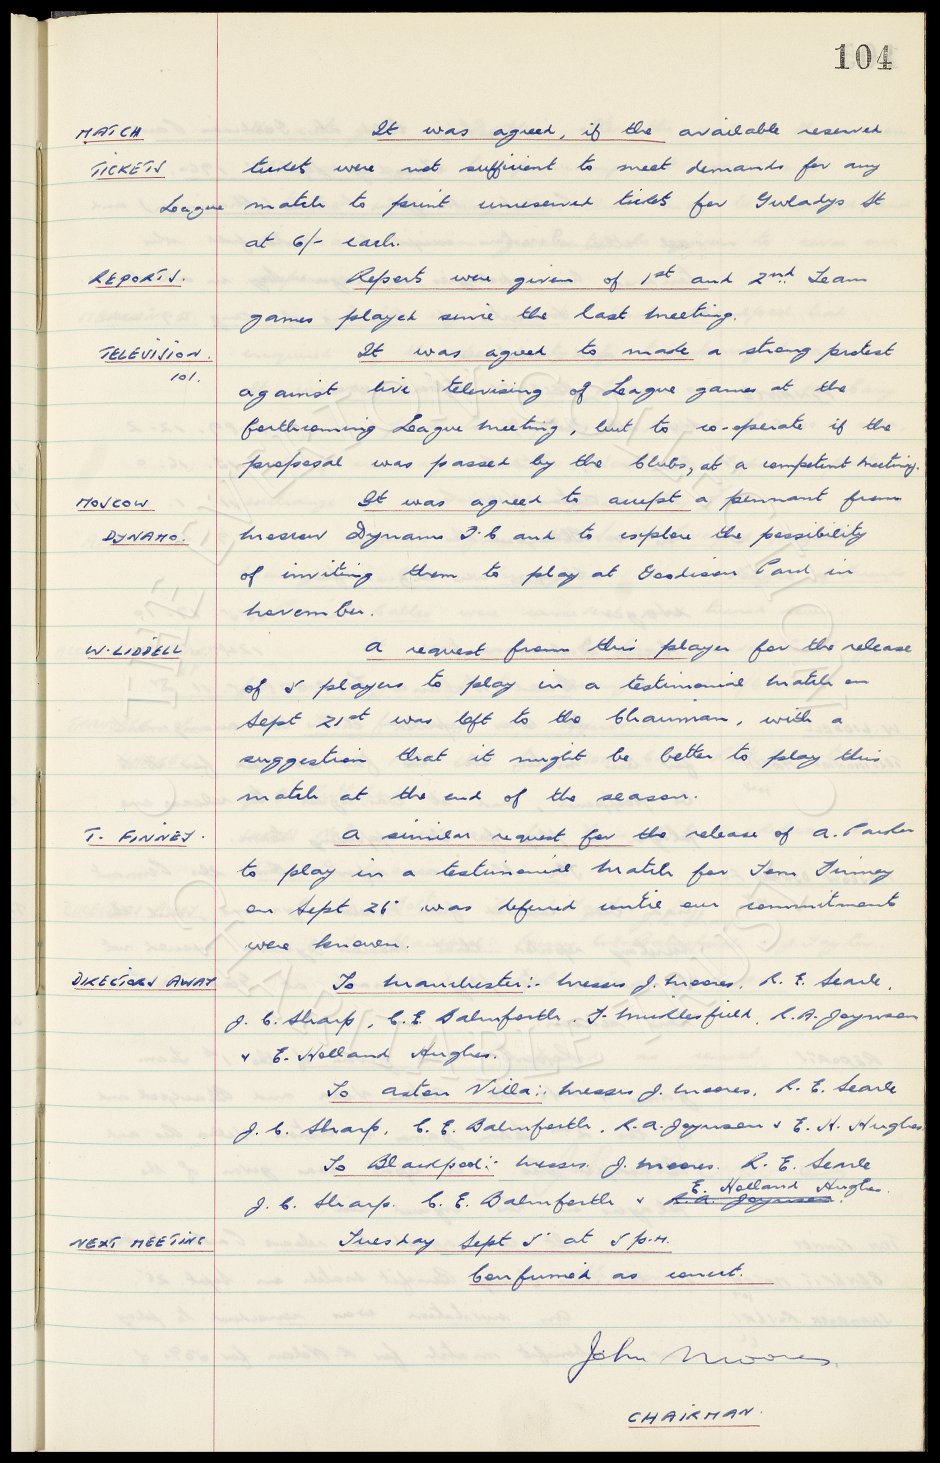 104
MATCH It was agreed, if the available reserved
TICKETS tickets were not sufficient to meet demands for any
League match to print unreserved tickets for Gwladys St
at 6/- each.
REPORTS. Reports were given of 1st and 2nd Team
games played since the last meeting.
TELEVISION. It was agreed to made a strong protest
101. against live televising of League games at the
forthcoming League meeting, but to co-operate if the
proposal was passed by the Clubs, at a competent meeting.
MOSCOW It was agreed to accept a pennant from
DYNAMO. Moscow Dynamo F.C and to explore the possibility
of inviting them to play at Goodison Park in
November.
W. LIDDELL A request from this player for the release
of 5 players to play in a testimonial match on
Sept 21st was left to the Chairman, with a
suggestion that it might be better to play this
match at the end of the season.
T. FINNEY. A similar request for the release of A. Parker
to play in a testimonial match for Tom Finney
on Sept 26 was deferred until our commitments
were known.
DIRECTORS AWAY To Manchester:- Messrs J. Moores, R. E. Searle,
J. C. Sharp, C. E. Balmforth, F. Micklesfield, R. A. Joynson
& E. Holland Hughes.
To Aston Villa:- Messrs J. Moores, R. E. Searle
J. C. Sharp, C. E. Balmforth, R. A. Joynson & E. H. Hughes
To Blackpool:- Messrs. J. Moores. R. E. Searle
E. Holland Hughes.
J. C. Sharp. C. E. Balmforth & R. A. Joynson.
NEXT MEETING Tuesday Sept 5 at 5 p.m.
Confirmed as correct.
John Moores
CHAIRMAN.